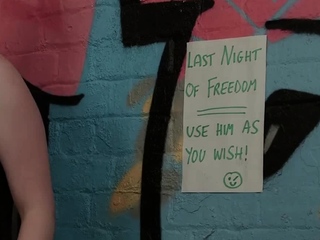 LAST NIGHT
OF FREEDOM
USE HIM AS
YOU WISH!